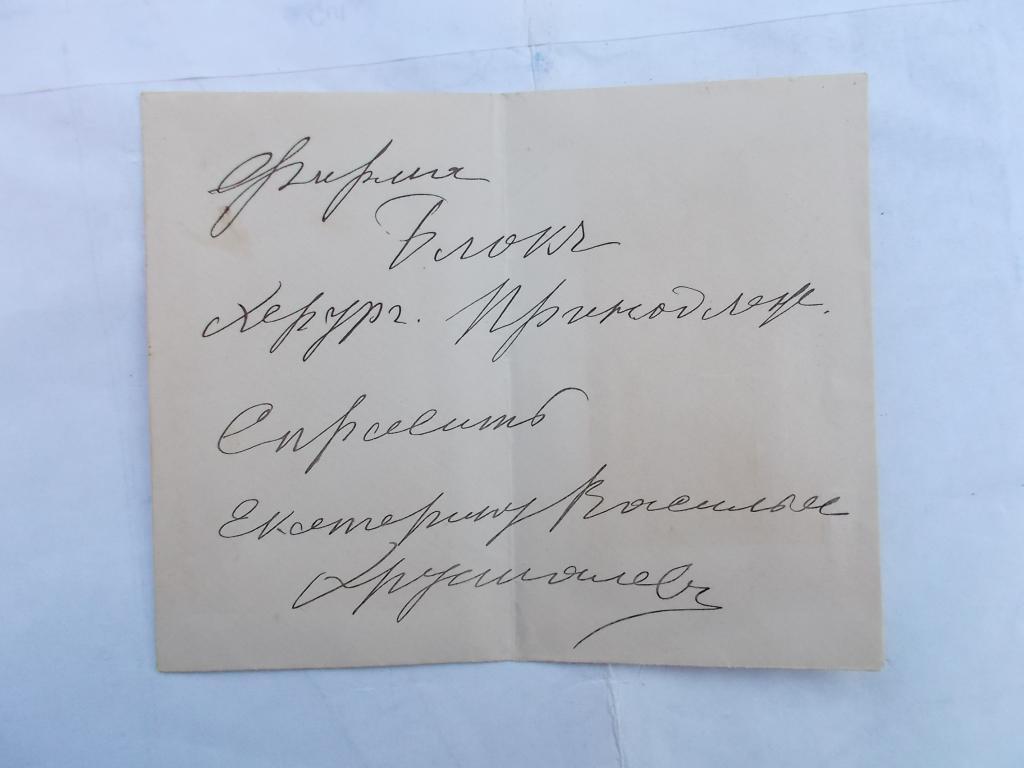 Фирма
Блокъ
Херург. Принодлеж.
Спросить
Екатерину Васильев
Хрусталевъ